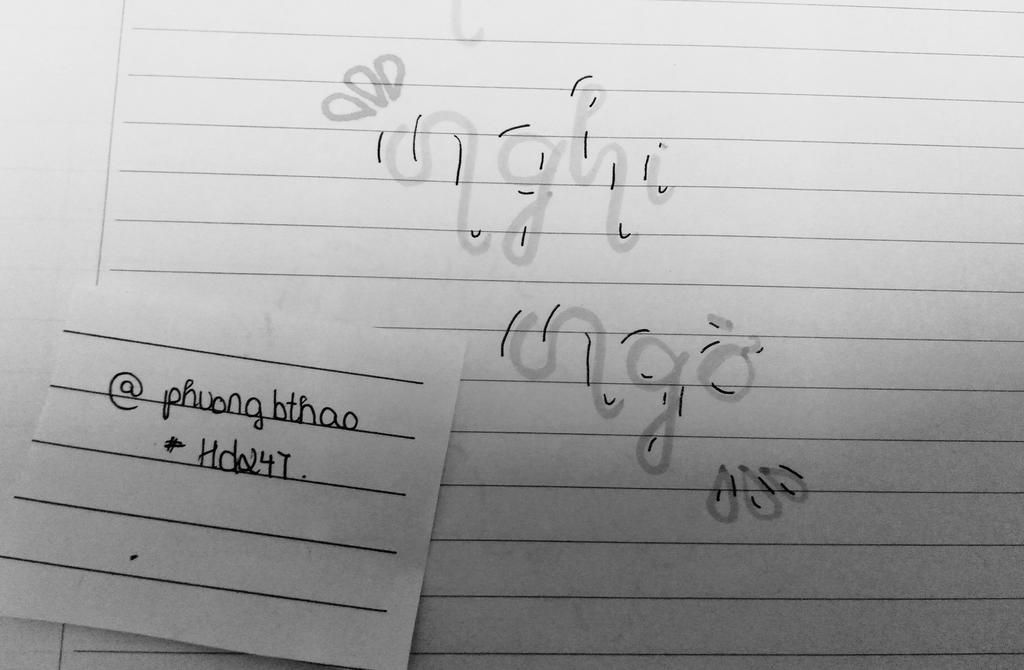 Nghi
Ngờ
@ phuongbthao
# Hda247.